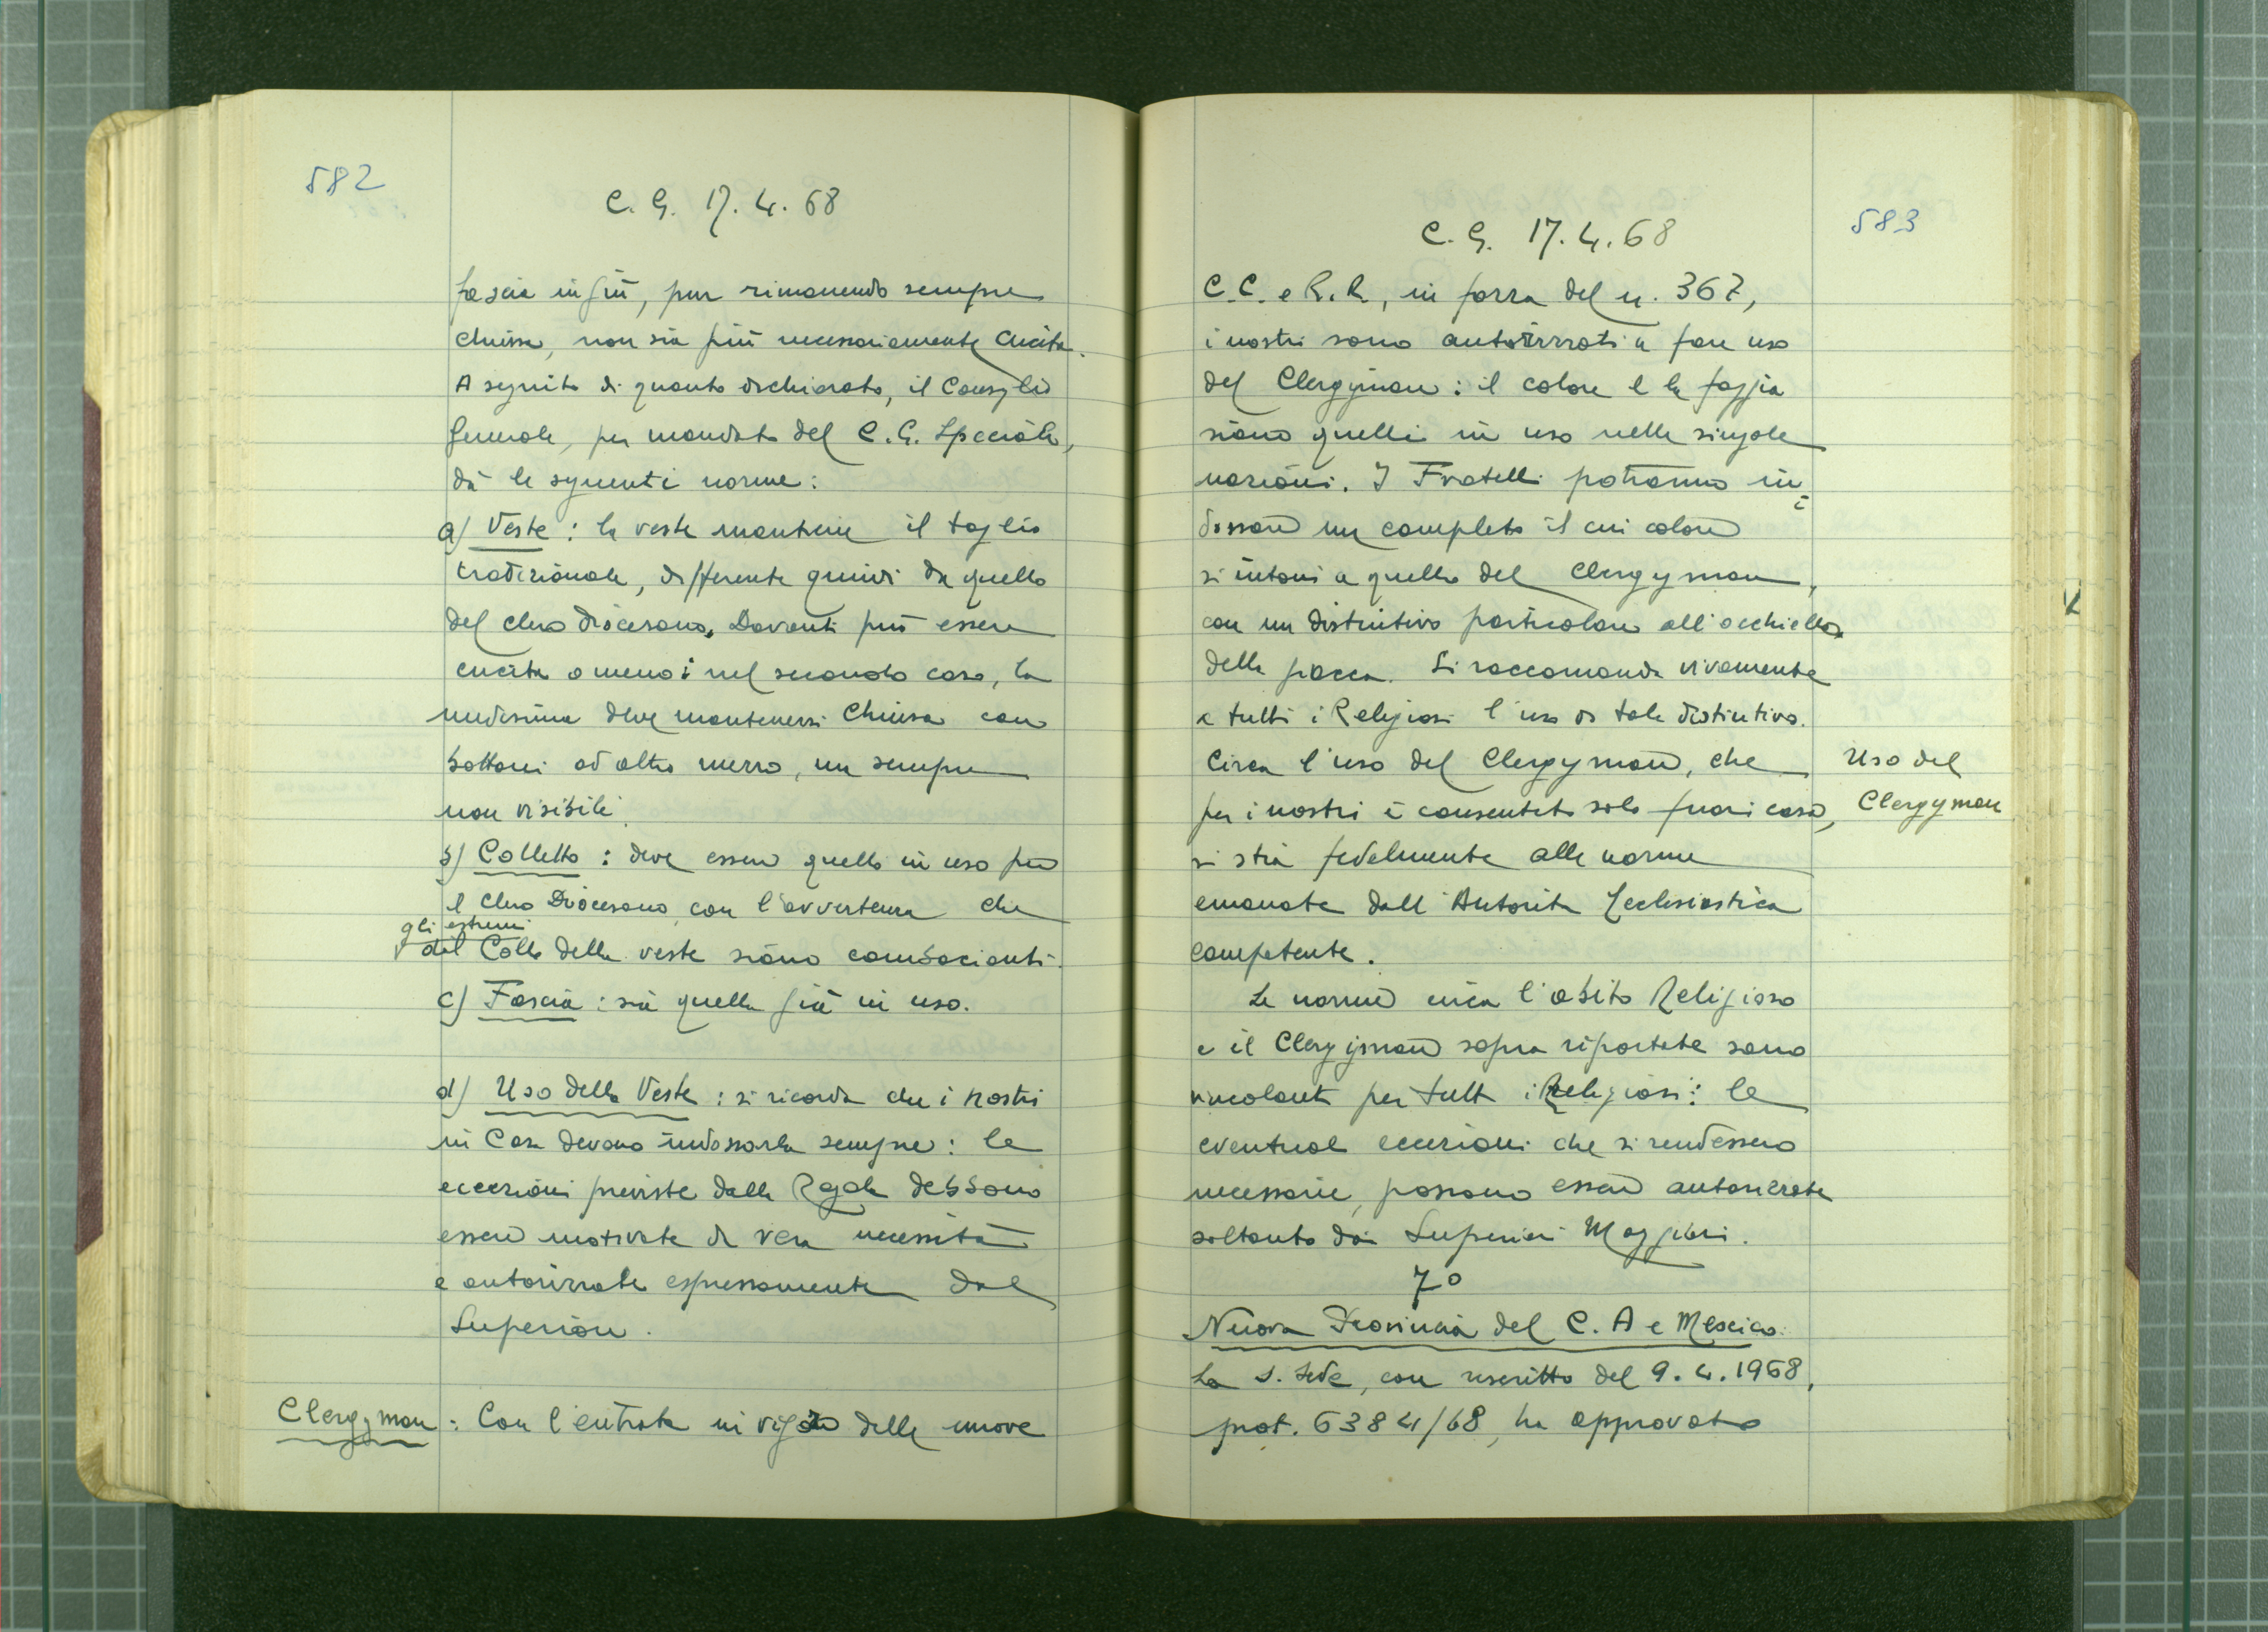 582
C. G. 17. 4. 68
fascia in giù, pur rimanendo sempre
chiusa, non sia più necessariamente cucita.
A seguito di quanto dichiarato, il Consiglio
Generale, per mandato del C. G. Speciale,
dà le seguenti norme:
a) Veste: la veste mantiene il taglio
tradizionale, differente quindi da quello
del clero diocesano. Davanti può essere
cucita o meno: nel secondo caso, la
medesima deve mantenersi chiusa con
bottoni od altro mezzo, ma sempre
non visibili.
b) Colletto: deve essere quello in uso per
il Clero Diocesano, con l'avvertenza che
gli estremi
del Collo della veste siano combacianti.
c) Fascia: sia quella già in uso.
d) Uso della Veste: si ricorda che i nostri
in Casa devono indossarla sempre: le
eccezioni previste dalla Regola debbono
essere motivate da vera necessità
e autorizzate espressamente dal
Superiore.
Clergyman: Con l'entrata in vigore delle nuove
583
C. G. 17. 4. 68
C.C. e R.R., in forza del n. 367,
i nostri sono autorizzati a fare uso
del Clergyman: il colore e la foggia
siano quelli in uso nelle singole
nazioni. I Fratelli potranno in
dossare un completo il cui colore
si intoni a quello del Clergyman,
con un distintivo particolare all'occhiello
della giacca. Si raccomanda vivamente
a tutti i Religiosi l'uso di tale distintivo.
Circa l'uso del Clergyman, che
per i nostri è consentito solo fuori casa,
si stia fedelmente alle norme
emanate dall'Autorità Ecclesiastica
competente.
Uso del
Clergyman
Le norme circa l'abito Religioso
e il Clergyman sopra riportate sono
vincolanti per tutti i Religiosi: le
eventuali eccezioni che si rendessero
necessarie, possono essere autorizzate
soltanto dai Superiori Maggiori.
7°
Nuova Provincia del C. A e Messico.
La S. Sede, con rescritto del 9. 4. 1968,
prot. 6384/68, ha approvato